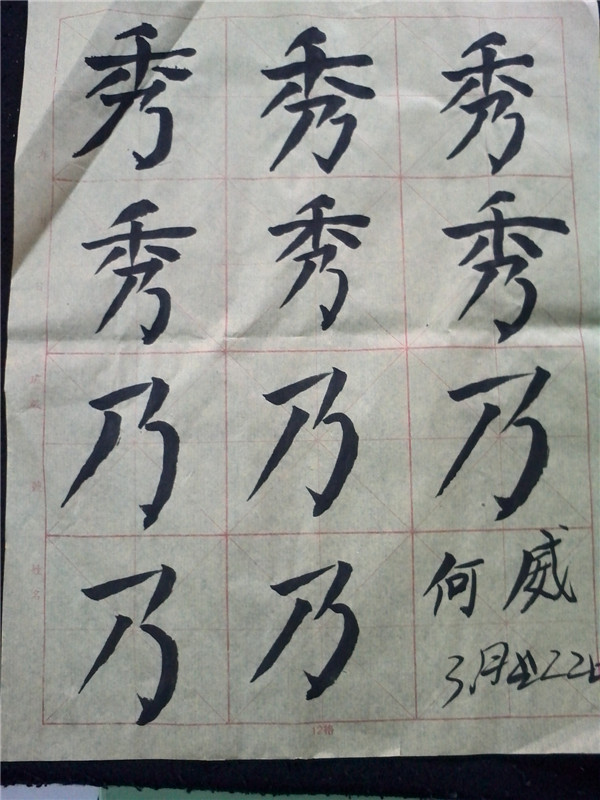 秀秀秀
秀秀秀
乃乃乃
乃乃
何威
3月
12格